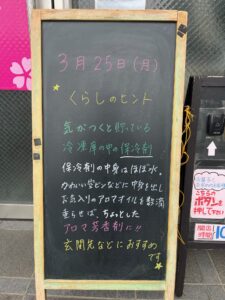 3月25日(月)
★くらしのヒント
気がつくと貯っている
冷凍庫の中の保冷剤
保冷剤の中身はほぼ水。
かわいい空ビンなどに中身を出し
お気入りのアロマオイルを数滴
垂らせば、ちょっとした
アロマ芳香剤に!!
玄関先などにおすすめ
です★
こちらの
ボタンを
押して下さい